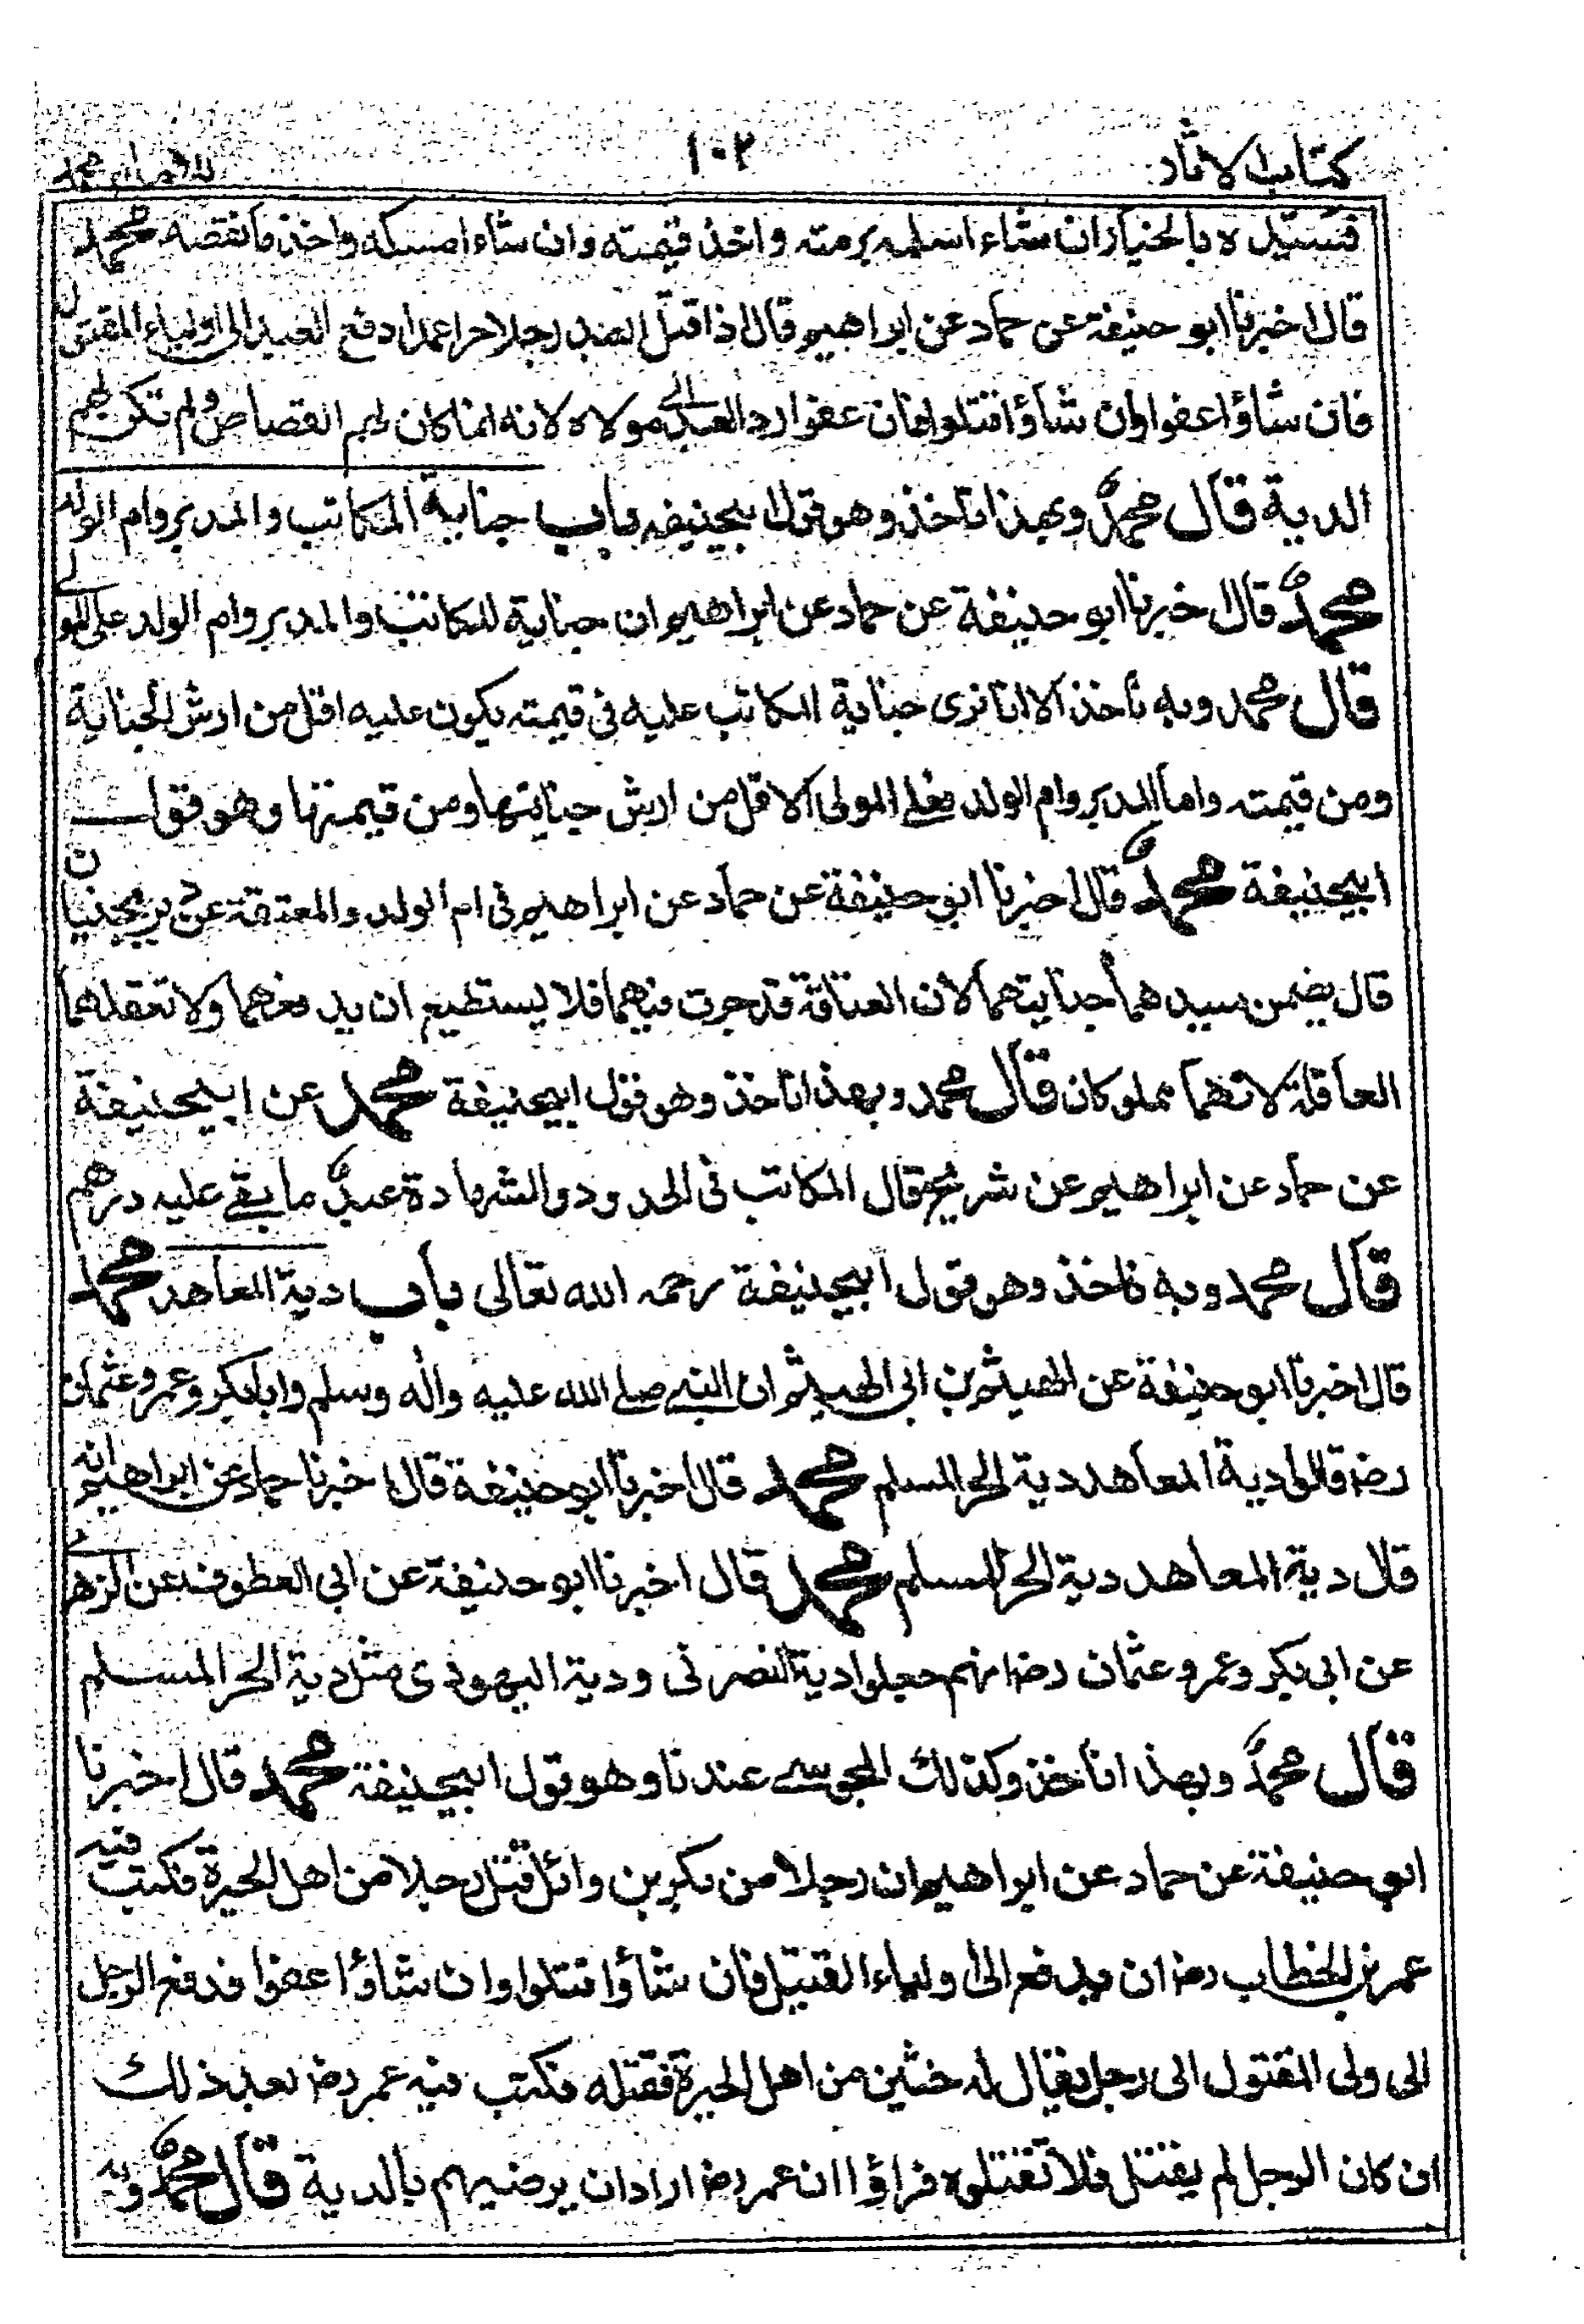 كتاب الاثار ١٠٢ للامام محمد
فسيده بالخيار ان شاء اسلمه برمته واخذ قيمته وان شاء امسكه واخذ ما نقصه محمد
قال اخبرنا ابو حنيفة عن حماد عن ابراهيم قال اذا قتل العبد رجلا حرا عمدا دفع العبد الى اولياء المقتول
فان شاؤا عفوا وان شاؤا قتلوا فان عفوا رد العبد الے مولاه لانه انما كان لهم القصاص ولم تكن لهم
الدية قال محمد وبهذا ناخذ وهو قول ابيحنيفه باب جناية المكاتب والمدبر وام الولد
محمد قال اخبرنا ابو حنيفة عن حماد عن ابراهيم ان جناية المكاتب والمدبر وام الولد على المولے
قال محمد وبه نأخذ الا انا نرى جناية المكاتب عليه فى قيمته يكون عليه اقل من ارش الجناية
ومن قيمته واما المدبر وام الولد فعلى المولى الاقل من ارش جنايتها ومن قيمتها وهو قول
ابيحنيفة محمد قال اخبرنا ابو حنيفة عن حماد عن ابراهيم فى ام الولد والمعتقة عن دبر يجنيان
قال يضمن سيدهما جنايتهما لان العتاقة قد جرت فيهما فلا يستطيع ان يدفعهما ولا تعقلهما
العاقلة لانهما مملوكان قال محمد وبهذا ناخذ وهو قول ابيحنيفة محمد عن ابيحنيفة
عن حماد عن ابراهيم عن شريح قال المكاتب فى الحدود والشهادة عبد ما بقے عليه درهم
قال محمد وبه ناخذ وهو قول ابيحنيفة رحمه الله تعالى باب دية المعاهد محمد
قال اخبرنا ابو حنيفة عن الهيثم بن ابى الهيثم ان النبے صلے الله عليه واله وسلم وابا بكر وعمر وعثمان
رضه قالوا دية المعاهد دية الحر المسلم محمد قال اخبرنا ابو حنيفة قال اخبرنا حماد عن ابراهيم انه
قال دية المعاهد دية الحر المسلم محمد قال اخبرنا ابو حنيفة عن ابى العطوف عن الزهرے
عن ابى بكر وعمر وعثمان رضه انهم جعلوا دية النصرنى ودية اليهودى مثل دية الحر المسلم
قال محمد وبهذا ناخذ وكذلك المجوسے عندنا وهو قول ابيحنيفة محمد قال اخبرنا
ابو حنيفة عن حماد عن ابراهيم ان رجلا من بكر بن وائل قتل رجلا من اهل الحيرة فكتب فيه
عمر بن الخطاب رضه ان يدفع الى اولياء القتيل فان شاؤا قتلوا وان شاؤا عفوا فدفع الرجل
الى ولى المقتول الى رجل يقال له خنين من اهل الحيرة فقتله فكتب فيه عمر رضه بعد ذلك
ان كان الرجل لم يقتل فلا تقتلوه فراؤا ان عمر رضه اراد ان يرضيهم بالدية قال محمد وبه